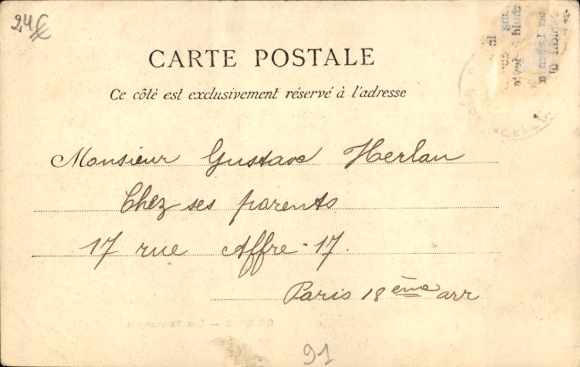 24 €
CARTE POSTALE
Ce côté est exclusivement réservé à l'adresse
Monsieur Gustave Herlan
Chez ses parents
17 rue Affre - 17.
Paris 18 ème arr
91